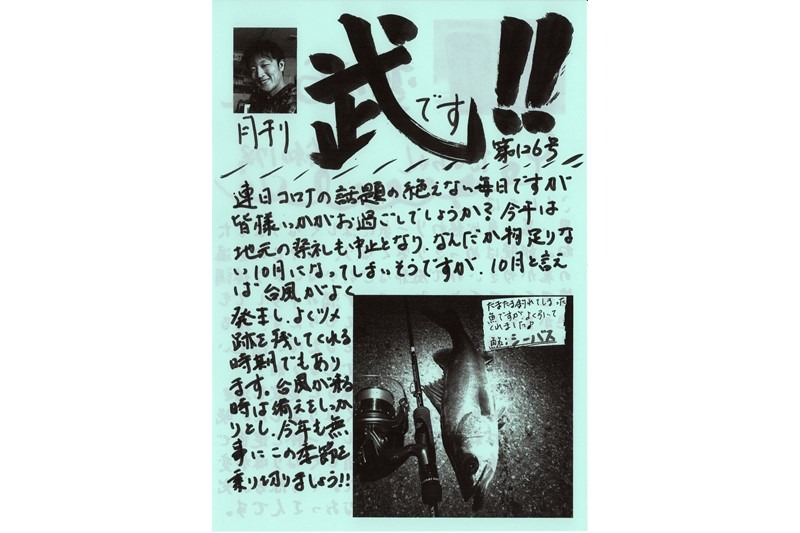 月刊
武です!!
第126号
連日コロナの話題の絶えない毎日ですが
皆様いかがお過ごしでしょうか?今年は
地元の祭礼も中止となり、なんだか物足りな
い10月になってしまいそうですが、10月と言え
ば台風がよく
発生し、よくツメ
跡を残してくれる
時期でもあり
ます。台風が来る
時は備えをしっか
りとし、今年も無
事にこの季節を
乗り切りましょう!!
たまたま釣れてしまった
魚ですがよく引いて
くれました♪
シーバス